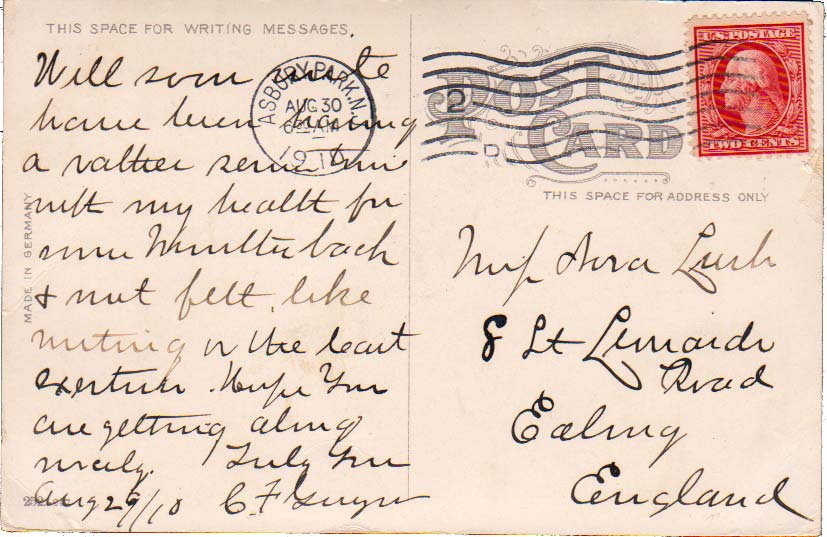 THIS SPACE FOR WRITING MESSAGES.
Will soon write
have been having
a rather serious time
with my health for
some months back
& not felt like
writing or the least
exertion. Hope you
are getting along
nicely. Truly You
Aug 29/10 C F
MADE IN GERMANY
ASBURY PARK, N.J.
AUG 30
AM
1910
2
D
POST CARD
U.S. POSTAGE
TWO CENTS
THIS SPACE FOR ADDRESS ONLY
Miss Nora Lush
8 St Leonards
Road
Ealing
England